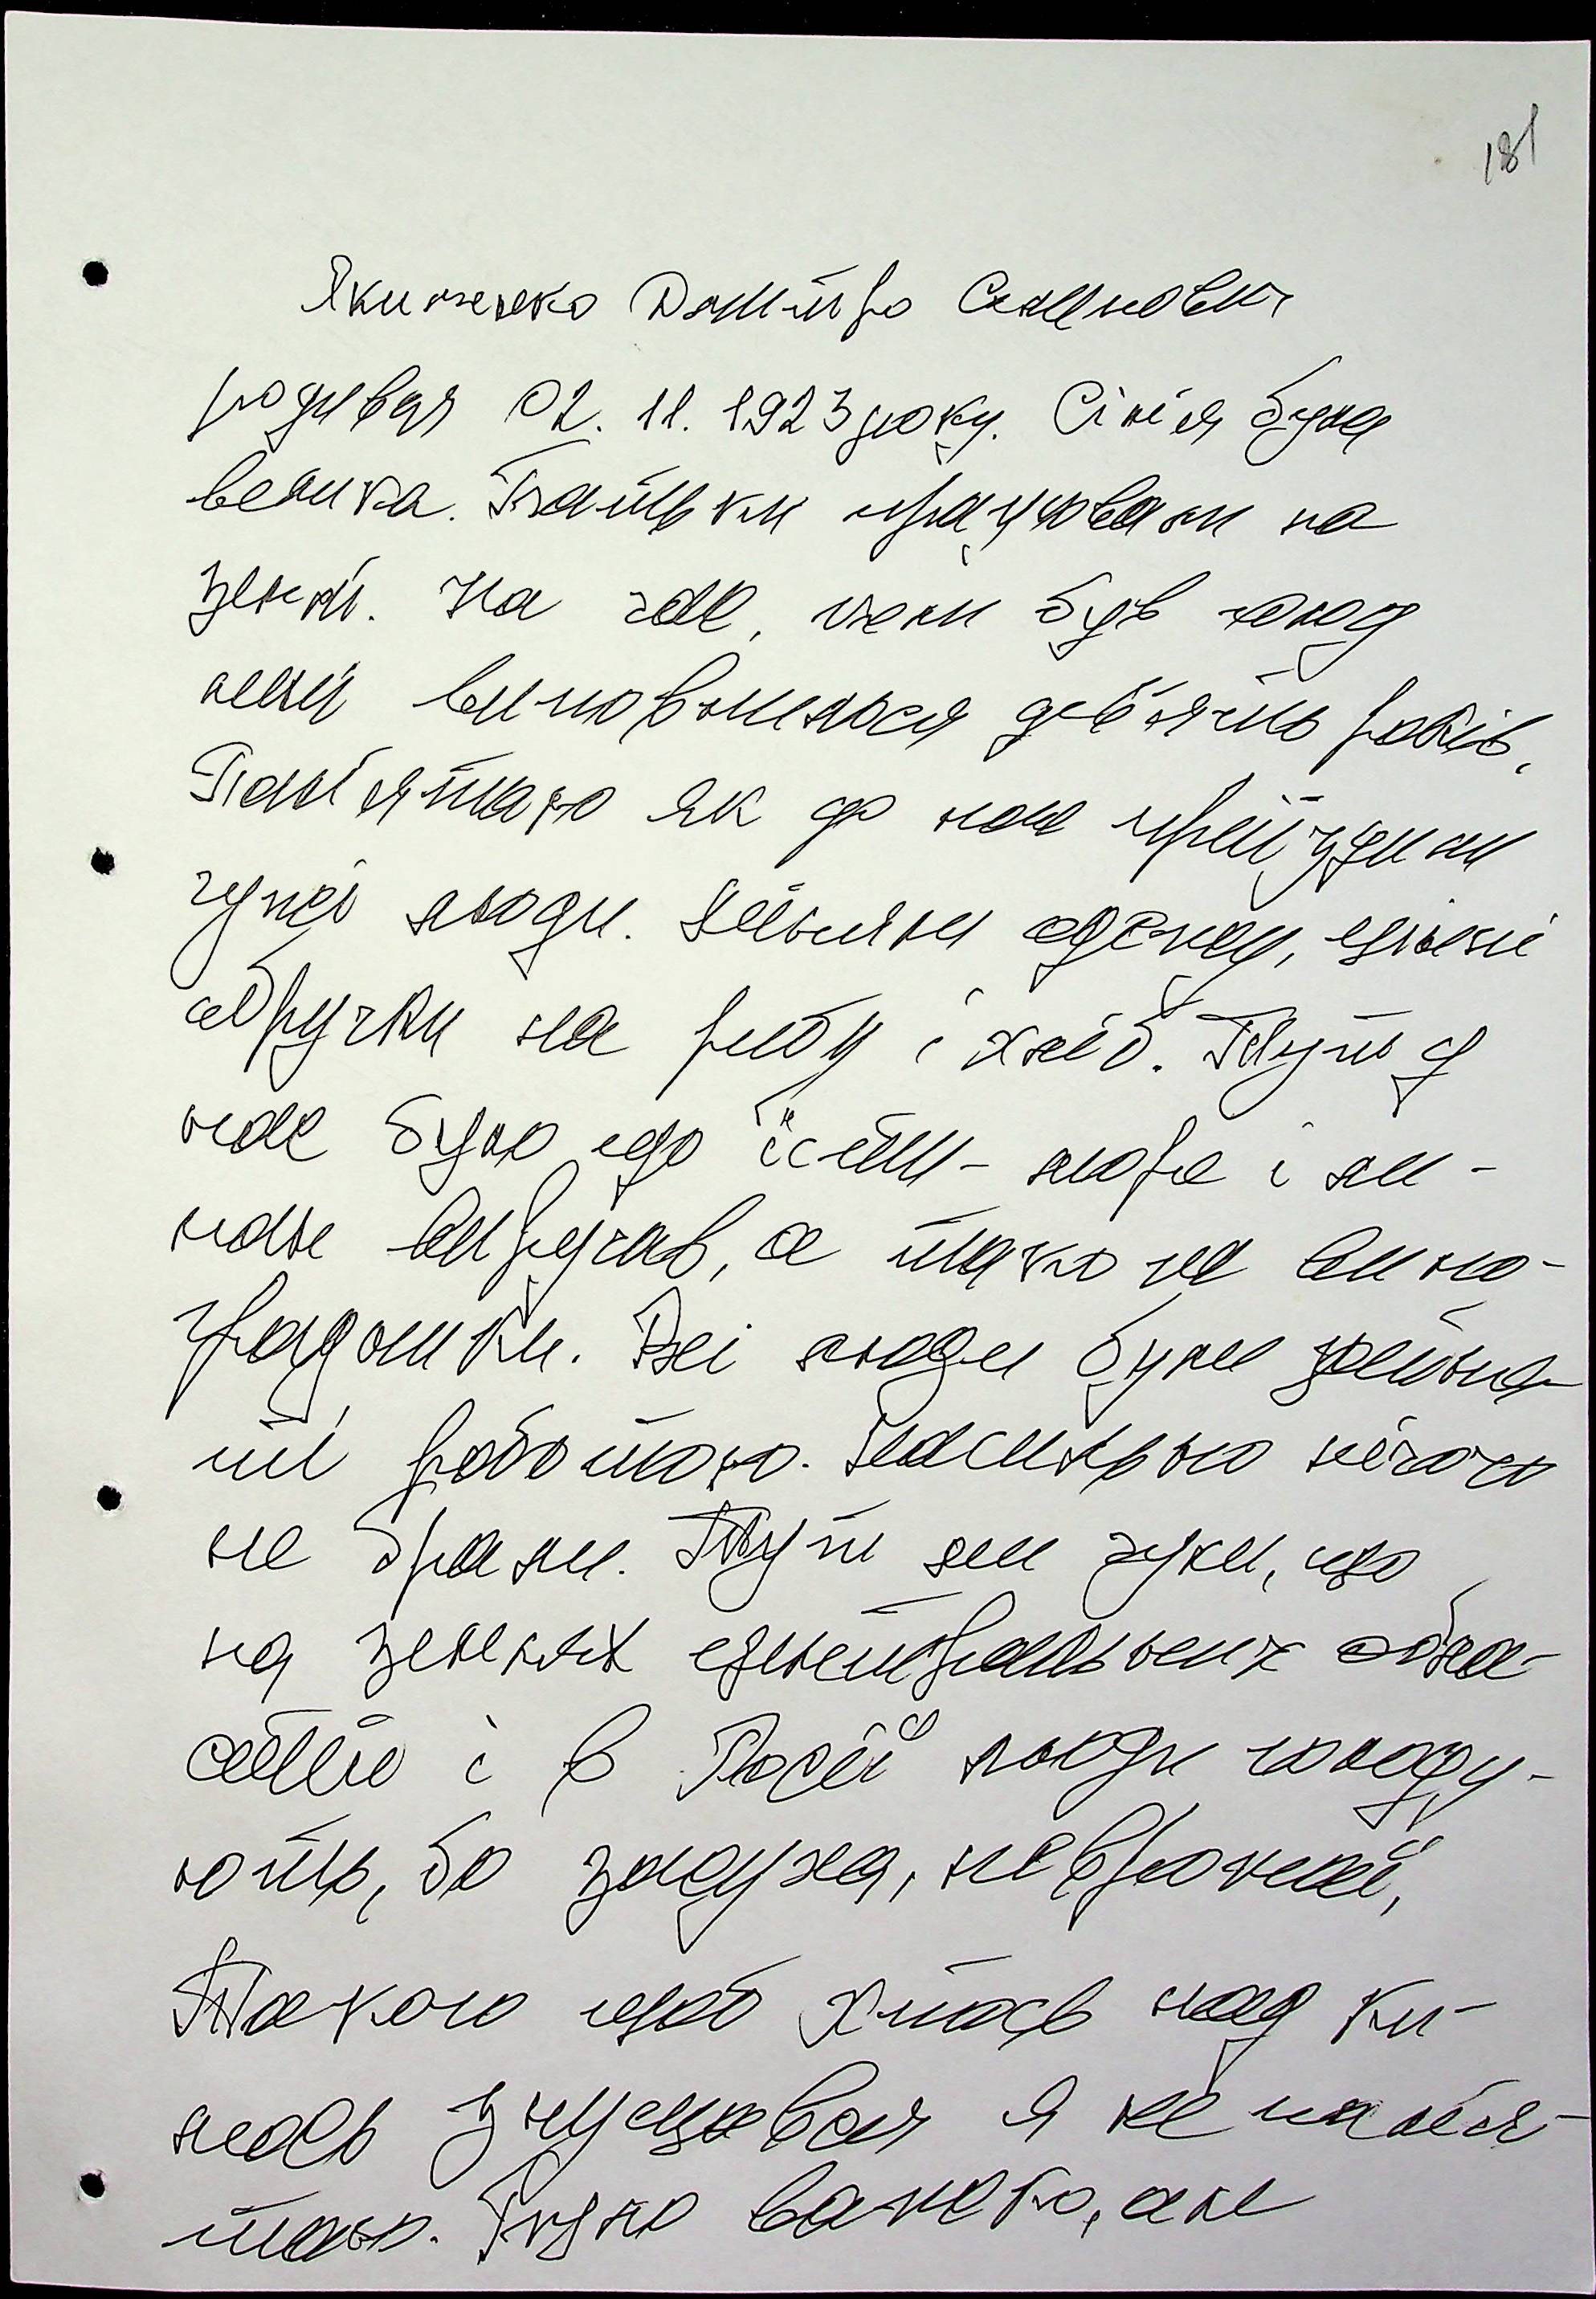 181
Якименко Дмитро Семнович
родився 02.11.1923 року. Сім'я була
велика. Батьки працювали на
землі. На час, коли був голод
мені виповнилося дев'ять років.
Пам'ятаю як до нас приїздили
чужі люди. Міняли одежу, цінні
обручки на рибу і хліб. Тут у
нас було що їсти - море і ли-
ман виручав, а також вино-
градники. Всі люди були зайня-
ті роботою. Насильно нічого
не брали. Тут ми чули, що
на землях центральних обла-
стей і в Росії люди голоду-
ють, бо засуха, неврожай,
Такого щоб хтось над ки-
мось знущався я не пам'я-
таю. Було важко, але